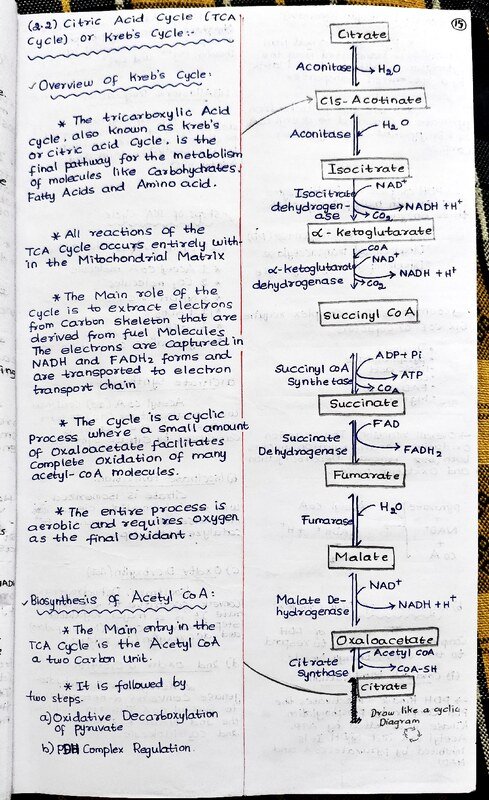 (2.2) Citric Acid Cycle (TCA
Cycle) or Kreb's Cycle:-
Overview of Kreb's Cycle:
* The tricarboxylic Acid
Cycle, also known as Kreb's
or citric acid cycle, is the
final pathway for the metabolism
of molecules like Carbohydrates,
Fatty Acids and Amino acid.
* All reactions of the
TCA Cycle occurs entirely with-
in the Mitochondrial Matrix
* The Main role of the
Cycle is to extract electrons
from Carbon skeleton that are
derived from fuel Molecules
The electrons are captured in
NADH and FADH2 forms and
are transported to electron
transport chain
* The Cycle is a cyclic
Process where a small amount
of Oxaloacetate facilitates
Complete Oxidation of many
acetyl-CoA molecules.
* The entire process is
aerobic and requires oxygen
as the final Oxidant
Biosynthesis of Acetyl CoA:
* The Main entry in the
TCA Cycle is the Acetyl CoA
a two Carbon Unit.
* It is followed by
two steps.
a) Oxidative Decarboxylation
of pyruvate
b) PDH Complex Regulation.
15
Citrate
Aconitase
H₂O
Cis-Acotinate
Aconitase
H₂O
Isocitrate
Isocitrate
dehydrogen-
ase
NAD⁺
NADH + H⁺
CO₂
α-ketoglutarate
α-ketoglutarat
dehydrogenase
COA
NAD⁺
NADH + H⁺
CO₂
Succinyl CoA
Succinyl CoA
Synthetase
ADP + Pi
ATP
COA
Succinate
Succinate
Dehydrogenase
FAD
FADH₂
Fumarate
Fumarase
H₂O
Malate
Malate De-
hydrogenase
NAD⁺
NADH + H⁺
Oxaloacetate
Citrate
Synthase
Acetyl COA
COA-SH
Citrate
Draw like a cyclic
Diagram